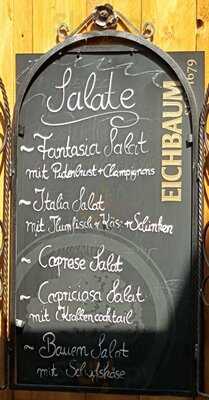 Salate
~ Fantasia Salat
mit Putenbrust + Champignons
~ Italia Salat
mit Thunfisch + Käse + Schinken
~ Caprese Salat
~ Capriciosa Salat
mit Krabbencocktail
~ Bauern Salat
mit Schafskäse
EICHBAUM
1679